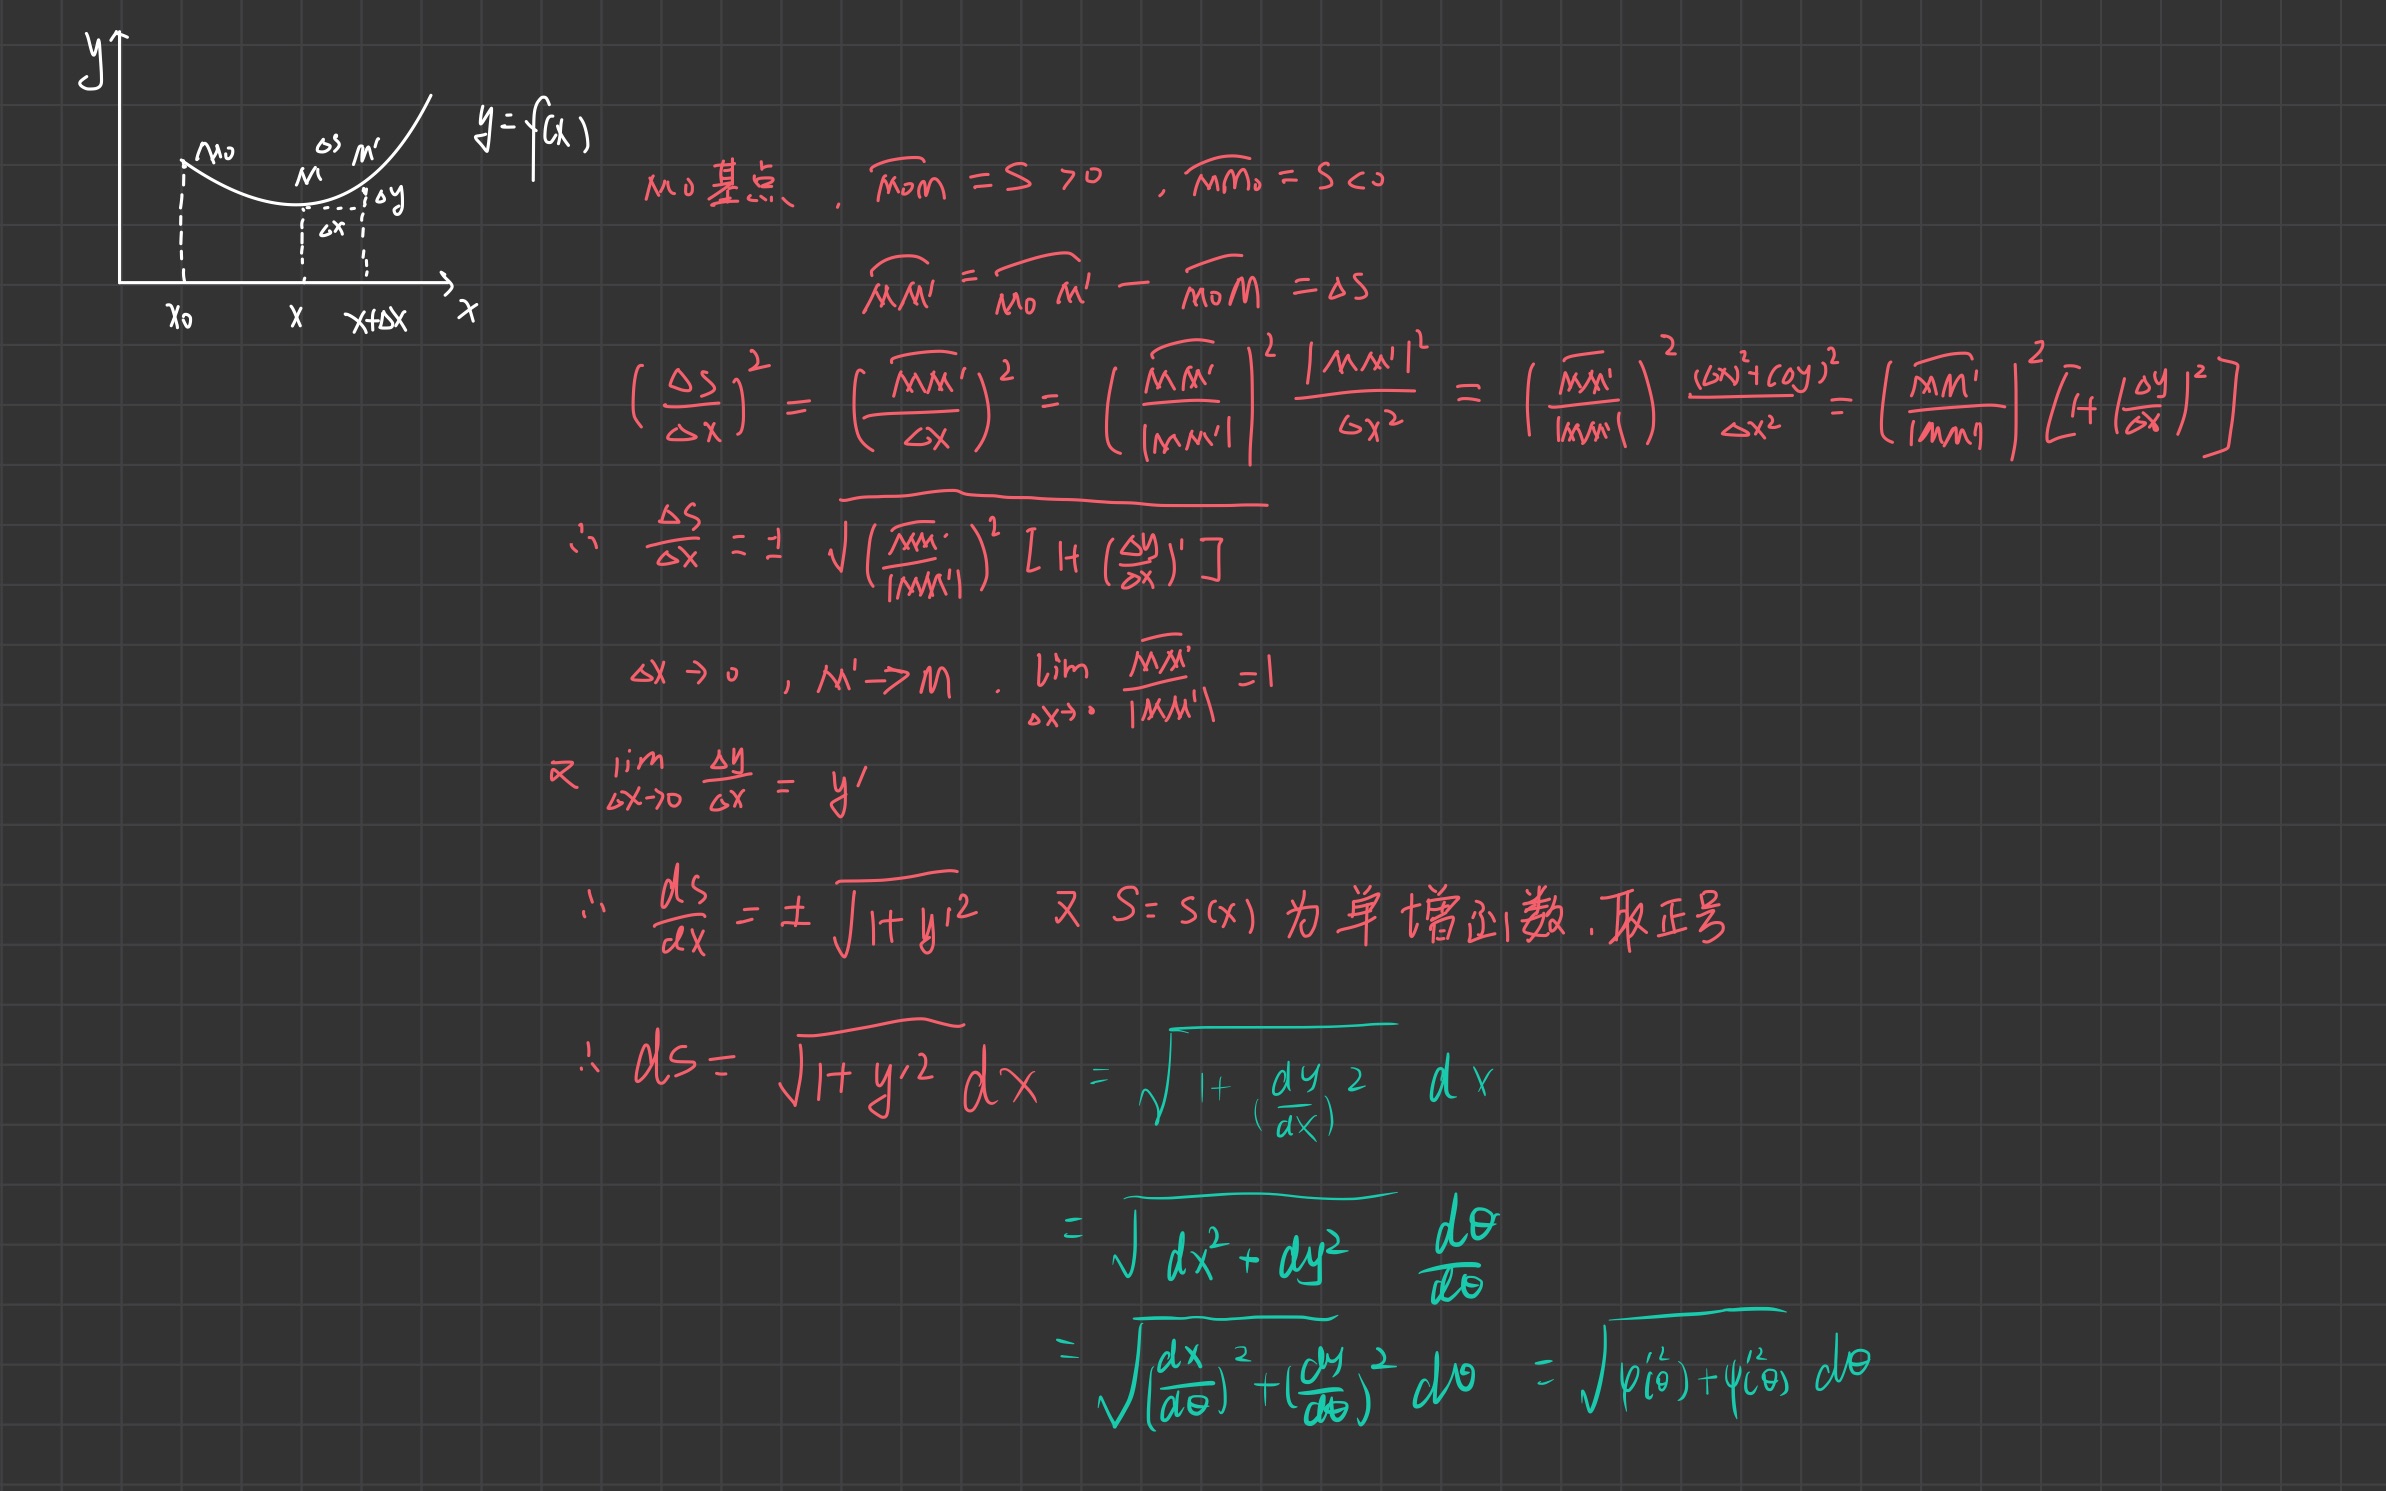 y
M₀ M Δs M' y=f(x)
Δy
Δx
x₀ x x+Δx x
M₀基点, ⌒M₀M = S >0 , ⌒MM₀ = S <0
⌒MM' = ⌒M₀M' − ⌒M₀M = ΔS
(ΔS/Δx)² = (⌒MM'/Δx)² = (⌒MM'/|MM'|)² |MM'|²/Δx² = (⌒MM'/|MM'|)² ((Δx)²+(Δy)²)/Δx² = (⌒MM'/|MM'|)² [1+(Δy/Δx)²]
∴ ΔS/Δx = ± √((⌒MM'/|MM'|)² [1+(Δy/Δx)'])
Δx→0 , M'→M . lim Δx→0 ⌒MM'/|MM'| =1
又 lim Δx→0 Δy/Δx = y'
∴ ds/dx = ± √(1+y'²) 又 S=S(x) 为单增函数, 取正号
∴ ds = √(1+y'²) dx = √(1+(dy/dx)²) dx
= √(dx²+dy²) dθ/dθ
= √((dx/dθ)²+(dy/dθ)²) dθ = √(φ'²(θ)+ψ'²(θ)) dθ